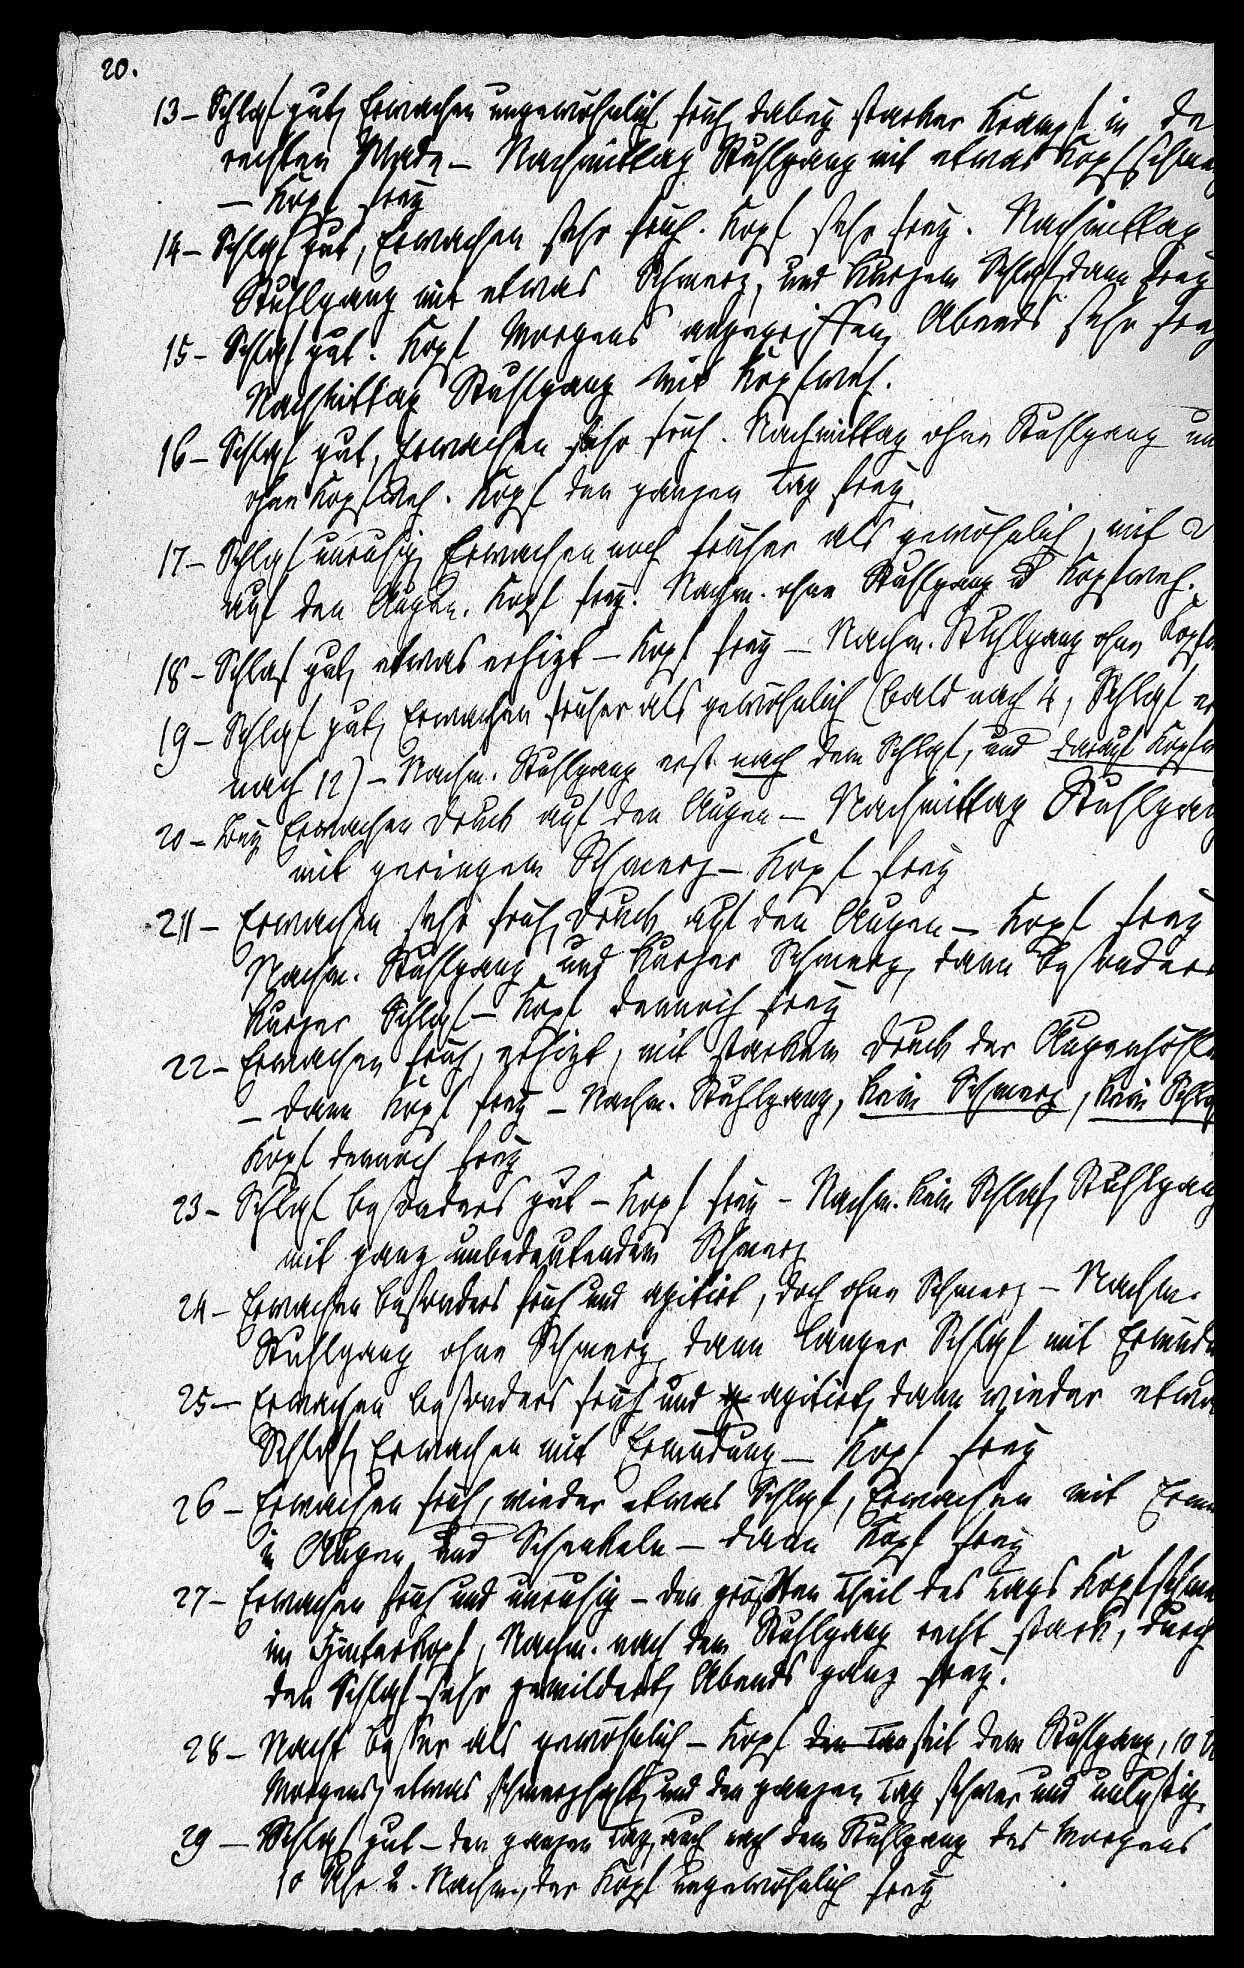 20.
13 – Schlaf gut, Erwachen ungewöhnlich früh, dabey starker Krampf in de
rechten Wade – Nachmittag Stuhlgang mit etwas Kopfschme
– Kopf frey
14 – Schlaf gut, Erwachen sehr früh. Kopf sehr frey. Nachmittag
Stuhlgang mit etwas Schmerz, und kurzem Schlaf, dann frey
15 – Schlaf gut. Kopf Morgens angegriffen, Abends sehr frey
Nachmittag Stuhlgang mit Kopfweh.
16 – Schlaf gut, Erwachen sehr früh. Nachmittag ohne Stuhlgang un
ohne Kopfweh. Kopf den ganzen Tag frey.
17 – Schlaf unruhig, Erwachen noch früher als gewöhnlich, mit D
auf den Augen. Kopf frey. Nachm. ohne Stuhlgang u Kopfweh.
18 – Schlaf gut, etwas erhizt – Kopf frey – Nachm. Stuhlgang ohne Kopfw
19 – Schlaf gut, Erwachen früher als gewöhnlich (bald nach 4, Schlaf er
nach 12) – Nachm. Stuhlgang erst nach dem Schlaf, und darauf Kopfw
20 – Bey Erwachen Druck auf den Augen – Nachmittag Stuhlgang
mit geringem Schmerz – Kopf frey
21 – Erwachen sehr früh, Druck auf den Augen – Kopf frey
Nachm. Stuhlgang und kurzer Schmerz, dann besonders
kurzer Schlaf – Kopf dennoch frey
22 – Erwachen früh, erhizt, mit starkem Druck der Augenhöhle
– dann Kopf frey – Nachm. Stuhlgang, kein Schmerz, kein Schlaf
Kopf dennoch frey
23 – Schlaf besonders gut – Kopf frey – Nachm. kein Schlaf, Stuhlgang
mit ganz unbedeutendem Schmerz
24 – Erwachen besonders früh und agitirt, doch ohne Schmerz – Nachm.
Stuhlgang ohne Schmerz, dann langer Schlaf mit Ermüdu
25 – Erwachen besonders früh und agitirt, dann wieder etwa
Schlaf, Erwachen mit Ermüdung – Kopf frey
26 – Erwachen früh, wieder etwas Schlaf, Erwachen mit Ermü
in Augen und Schenkeln – dann Kopf frey
27 – Erwachen früh und unruhig – den größten Theil des Tags Kopfschme
im Hinterkopf, Nachm. nach dem Stuhlgang recht stark, durch
den Schlaf sehr gemildert, Abends ganz frey.
28 – Nacht besser als gewöhnlich – Kopf den Tag seit dem Stuhlgang, 10 U
Morgens, etwas schmerzhaft, und den ganzen Tag schwer und unlustig.
29 – Schlaf gut – den ganzen Tag, auch nach dem Stuhlgang des Morgens
10 Uhr u. Nachm., der Kopf ungewöhnlich frey